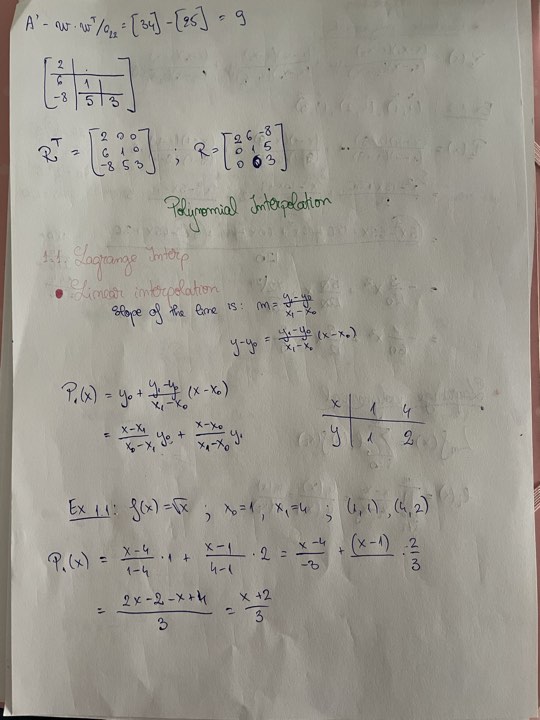 A' - w·wᵀ/c₂₂ = [34] - [25] = 9
2
6 1
-8 5 3
Rᵀ = [2 0 0; 6 1 0; -8 5 3] ; R = [2 6 -8; 0 1 5; 0 0 3]
Polynomial Interpolation
1.1. Lagrange Interp
• Linear interpolation
slope of the line is: m = (y₁-y₀)/(x₁-x₀)
y-y₀ = (y₁-y₀)/(x₁-x₀) (x-x₀)
P₁(x) = y₀ + (y₁-y₀)/(x₁-x₀) (x-x₀)
= (x-x₁)/(x₀-x₁) y₀ + (x-x₀)/(x₁-x₀) y₁
x 1 4
y 1 2
Ex 1.1: f(x) = √x ; x₀=1, x₁=4 ; (1,1), (4,2)
P₁(x) = (x-4)/(1-4) · 1 + (x-1)/(4-1) · 2 = (x-4)/-3 + (x-1) · 2/3
= (2x-2-x+4)/3 = (x+2)/3